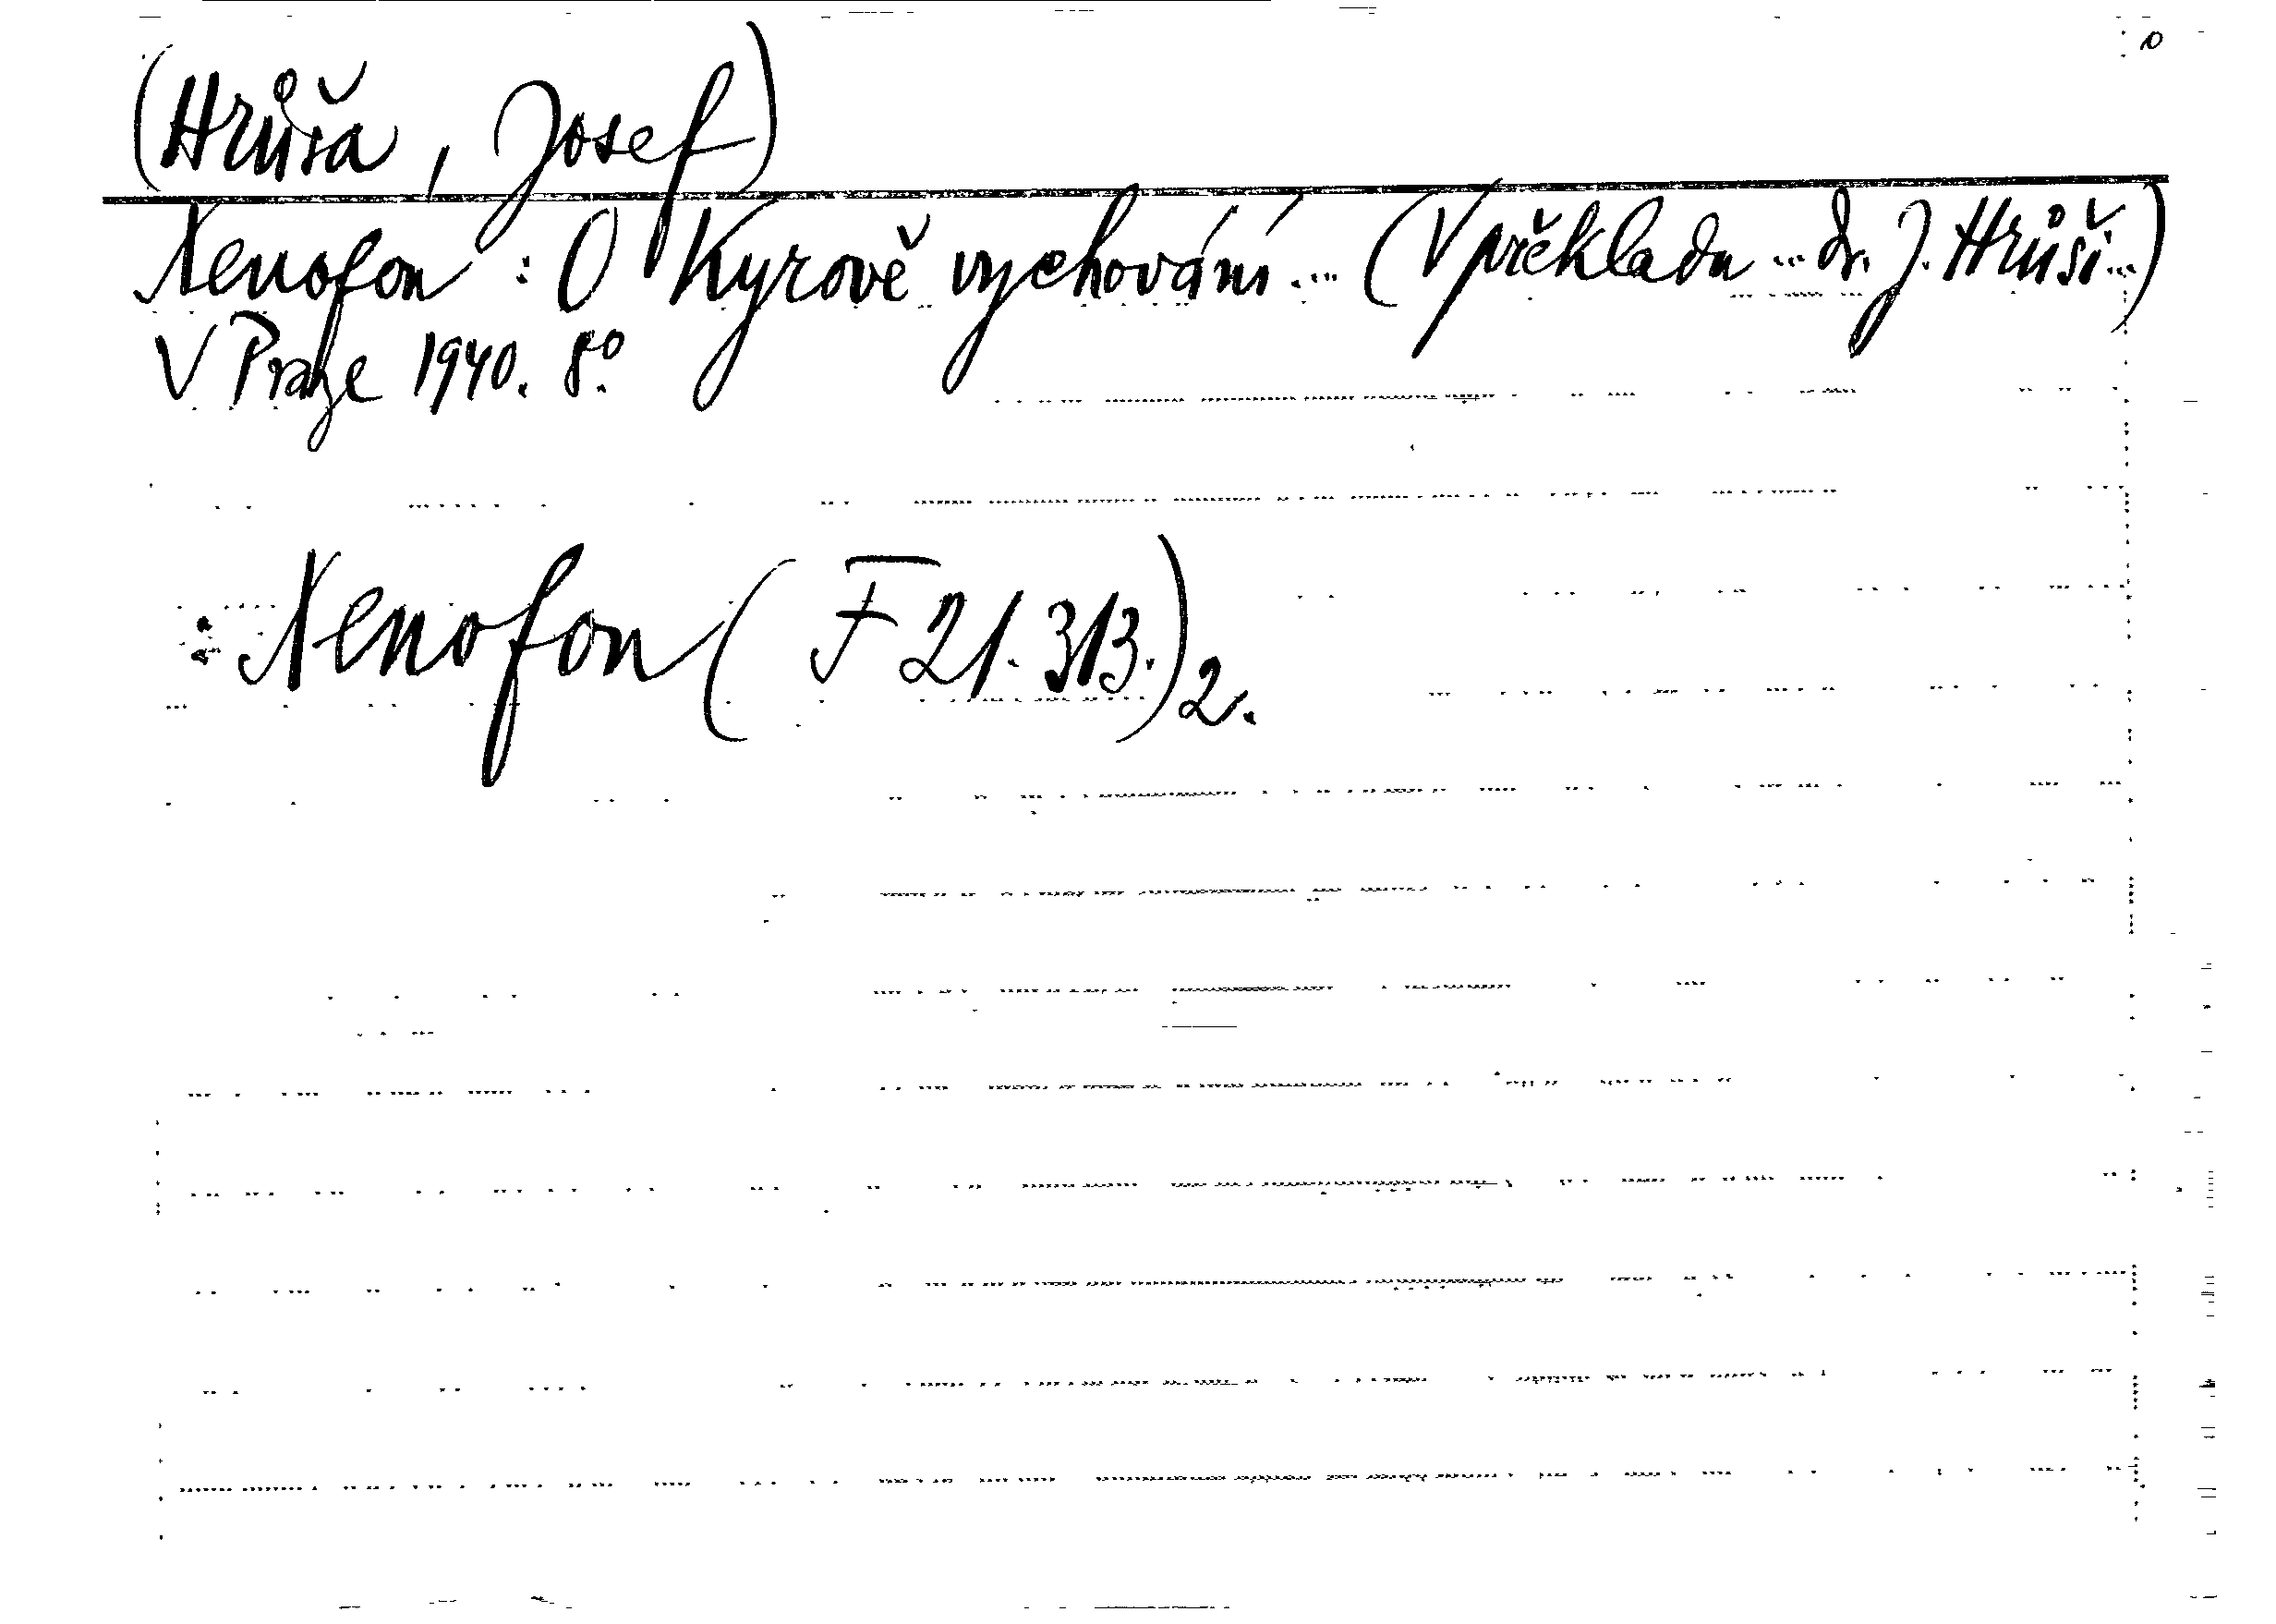 (Hrůša, Josef)
Xenofon: O Kyrově vychování... (V překladu ... dr. J. Hrůši...)
V Praze 1940. 8°.
: Xenofon (F 21.313.)2.